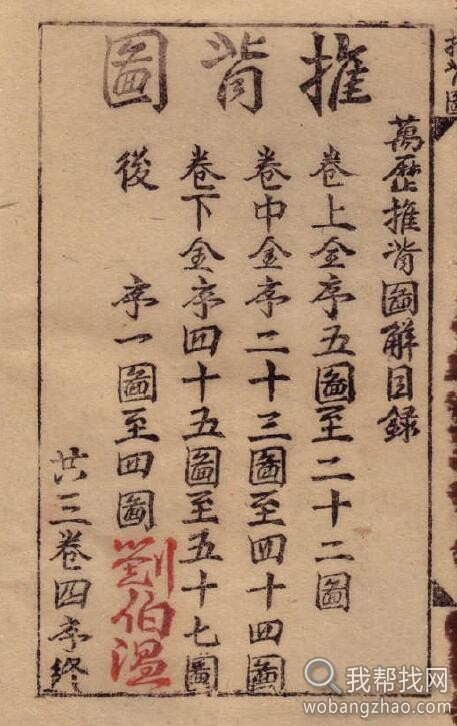 推背圖
萬歷推背圖解目錄
卷上金序五圖至二十二圖
卷中金序二十三圖至四十四圖
卷下金序四十五圖至五十七圖
後 序一圖至四圖 劉伯溫
共三卷四序終
推背圖
我帮找网
wobangzhao.com